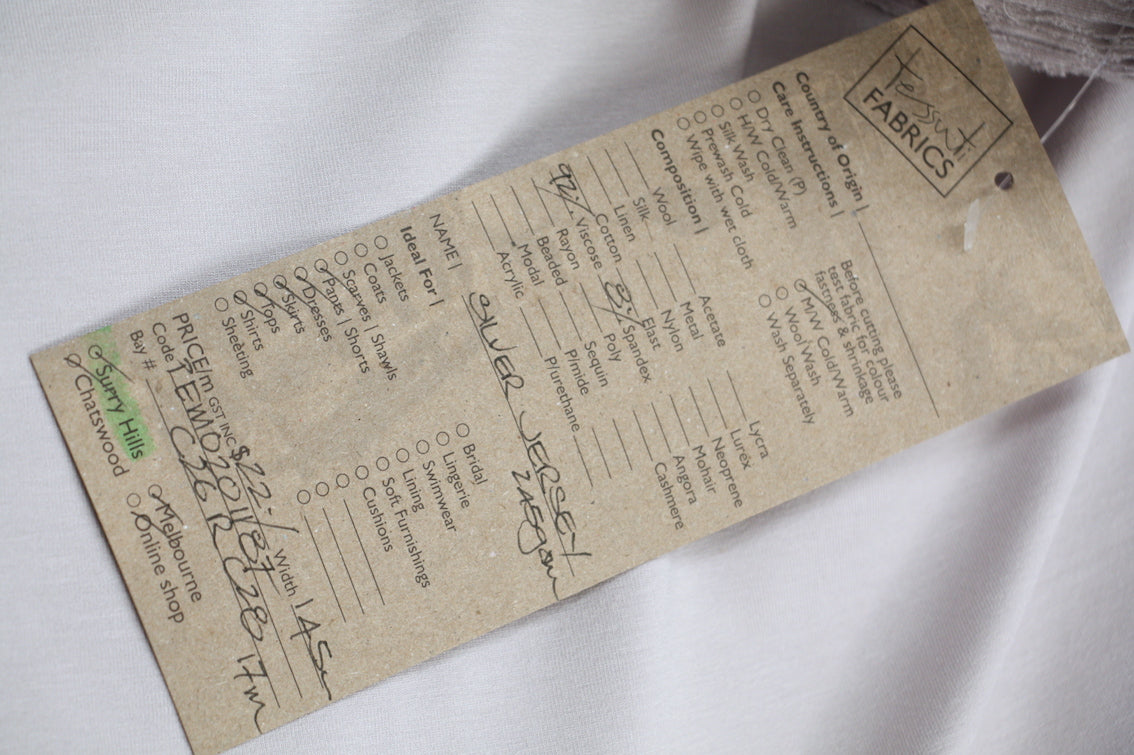 tessuti
FABRICS
Country of Origin |
Care Instructions |
Dry Clean (P)
H/W Cold/Warm
Silk Wash
Prewash Cold
Wipe with wet cloth
Before cutting please
test fabric for colour
fastness & shrinkage
M/W Cold/Warm
Wool Wash
Wash Separately
Composition |
Wool
Silk
Linen
Cotton
92% Viscose
Rayon
Beaded
Modal
Acrylic
Acetate
Metal
Nylon
Elast
8% Spandex
Poly
Sequin
P/mide
P/urethane
Lycra
Lurex
Neoprene
Mohair
Angora
Cashmere
NAME | SILVER JERSEY
Ideal For |
Jackets
Coats
Scarves | Shawls
Pants | Shorts
Dresses
Skirts
Tops
Shirts
Sheeting
Bridal
Lingerie
Swimwear
Lining
Soft Furnishings
Cushions
PRICE/m GST INC $22-/ Width 145
Code
Bay #
17m
Surry Hills
Chatswood
Melbourne
Online shop